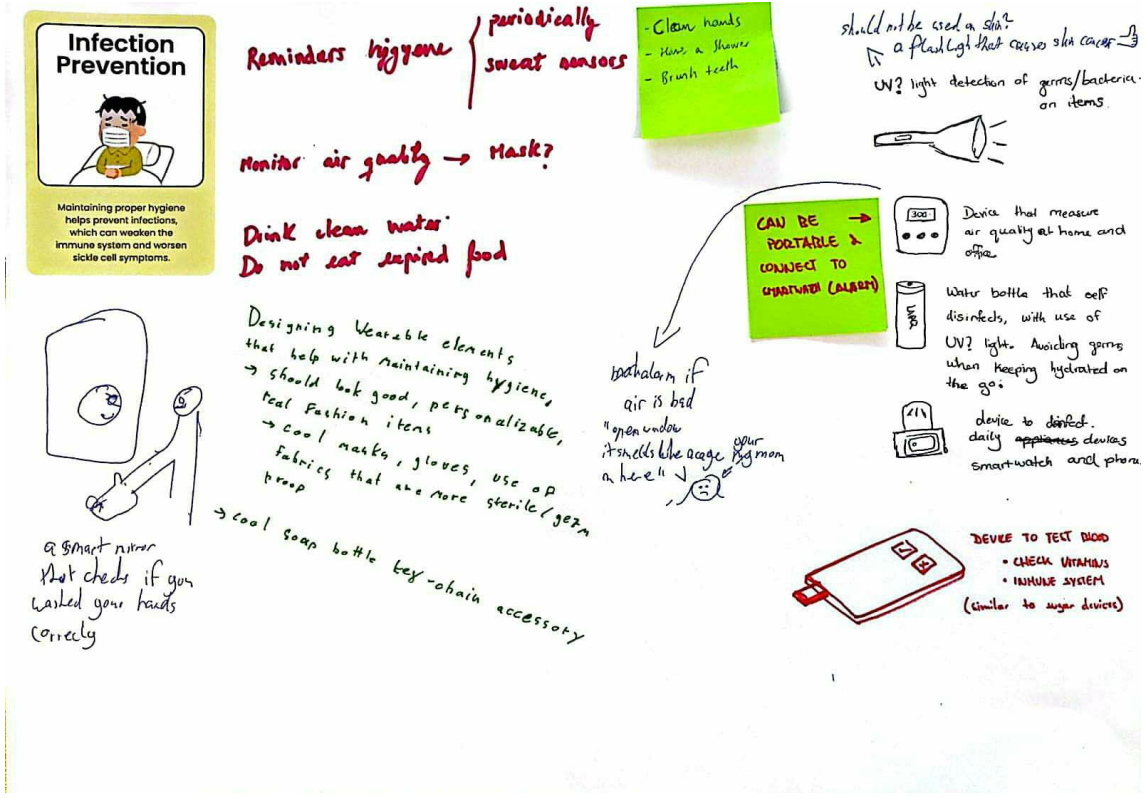 Infection
Prevention
Maintaining proper hygiene
helps prevent infections,
which can weaken the
immune system and worsen
sickle cell symptoms.
Reminders hygyene
periodically
sweat sensors
Monitor air quality → Mask?
Drink clean water
Do not eat expired food
- Clean hands
- Have a Shower
- Brush teeth
should not be used on skin?
a flashlight that causes skin cancer
UV? light detection of germs/bacteria
on items.
CAN BE →
PORTABLE &
CONNECT TO
SMARTWATCH (ALARM)
300
Device that measure
air quality at home and
office
Water bottle that self
disinfects, with use of
UV? light. Avoiding germs
when keeping hydrated on
the go.
device to
daily devices
smartwatch and phone
alarm if
air is bad
"open window
it smells like
in here"
your
mom
Designing Wearable elements
that help with maintaining hygiene,
→ should look good, personalizable,
real Fashion items
→ cool masks, gloves, use of
fabrics that are more sterile/germ
proof
→ cool soap bottle key-chain accessory
a smart mirror
that checks if you
washed your hands
correctly
DEVICE TO TEST BLOOD
• CHECK VITAMINS
• INMUNE SYSTEM
(similar to sugar devices)